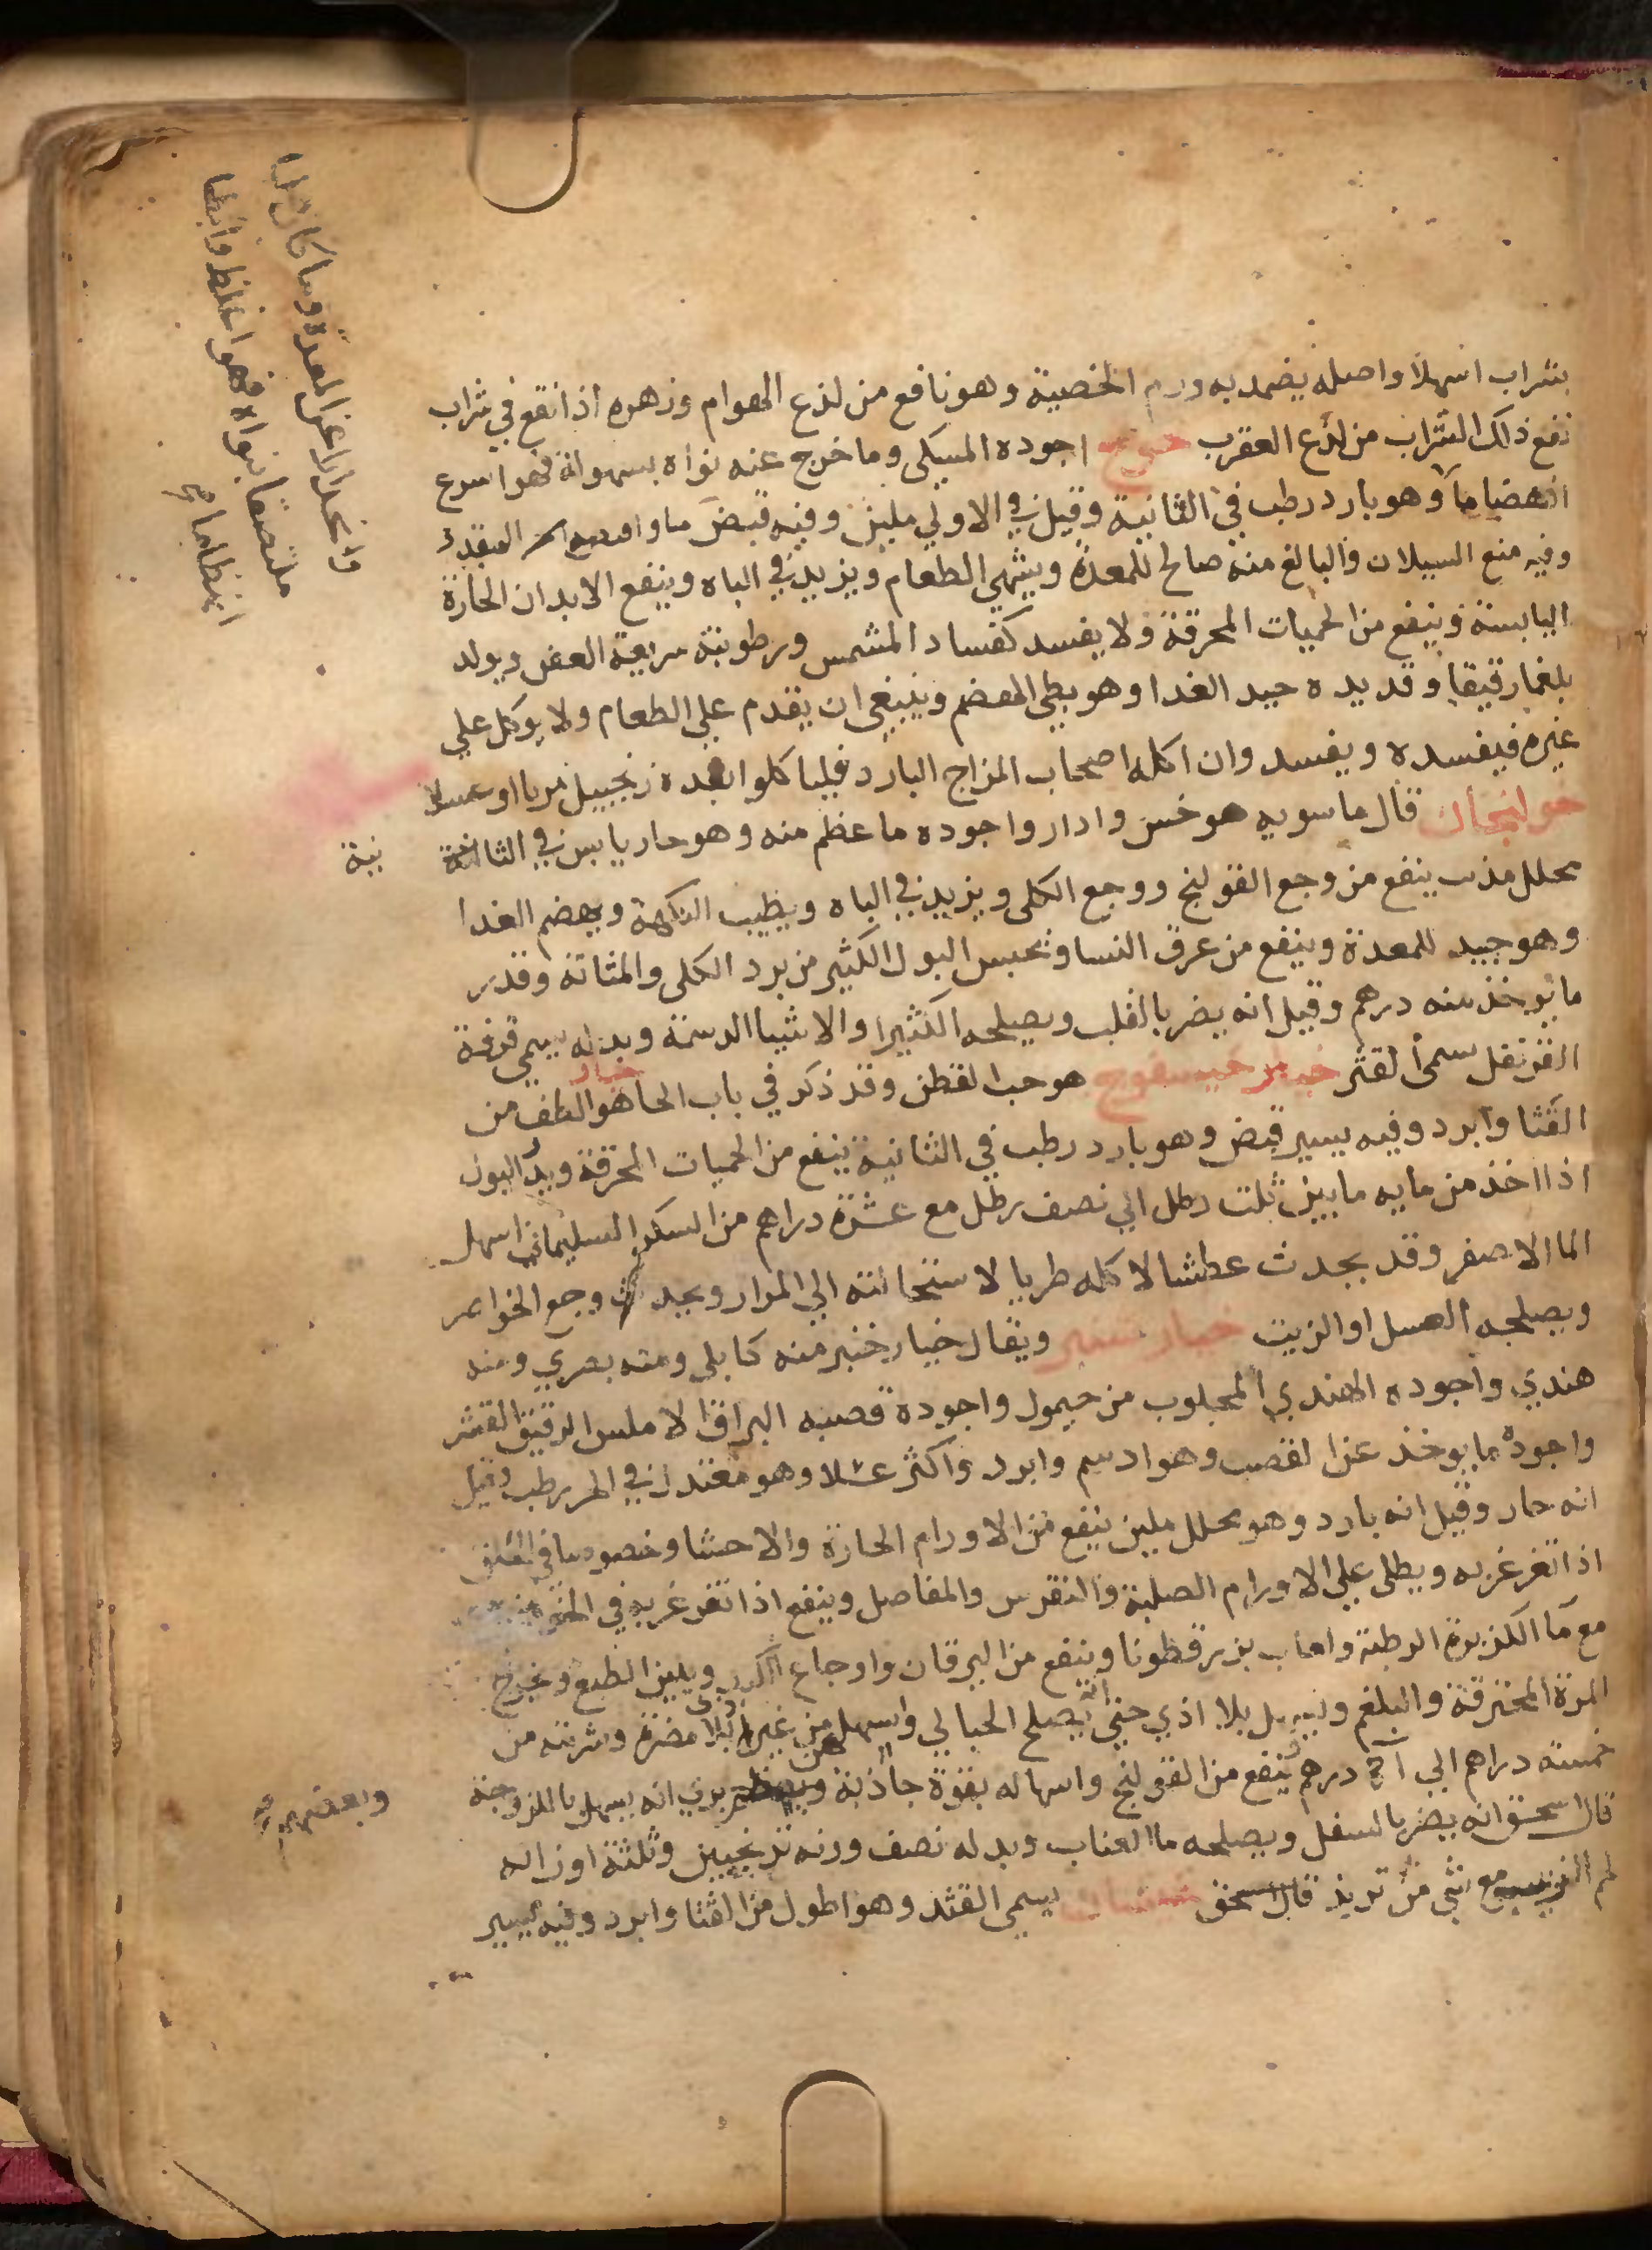 بشراب اسهلا واصله يضمد به ورم الخصية وهو نافع من لذع الهوام وزهره اذا نقع في شراب
نفع ذلك الشراب من لذع العقرب خوخ اجوده المسكي وما خرج عنه نواه بسهولة فهو اسرع
انهضاما وهو بارد رطب في الثانية وقيل في الاولي ملين وفيه قبض ما
وفيه منع السيلان والبالغ منه صالح للمعدة ويشهي الطعام ويزيد في الباه وينفع الابدان الحارة
اليابسة وينفع من الحميات المحرقة ولا يفسد كفساد المشمس ورطوبته سريعة العفن ويولد
بلغما رقيقا وقديده جيد الغدا وهو بطي الهضم وينبغي ان يقدم علي الطعام ولا يوكل علي
غيره فيفسده ويفسد وان اكله اصحاب المزاج البارد فلياكلوا بعده زنجبيل مربا او عسلا
خولنجان قال ماسويه هو خسن وادار واجوده ما عظم منه وهو حار يابس في الثالثة
محلل مذيب ينفع من وجع القولنج ووجع الكلي ويزيد في الباه ويطيب النكهة ويهضم الغدا
وهو جيد للمعدة وينفع من عرق النسا ويحبس البول الكثير من برد الكلي والمثانة وقدر
ما يوخذ منه درهم وقيل انه يضر بالقلب ويصلحه الكثيرا والاشيا الدسمة وبدله يسمي قرفة
القرنفل سمي لقثر خيسفوج هو حب القطن وقد ذكر في باب الحا خيار هو الطف من
القثا وابرد وفيه يسير قبض وهو بارد رطب في الثانية ينفع من الحميات المحرقة ويدر البول
اذا اخذ من مايه ما بين ثلث رطل الي نصف رطل مع عشرة دراهم من السكر السليماني اسهل
الما الاصفر وقد يحدث عطشا لاكله طريا لاستحالته الي المرار ويحدث وجع الخواصر
ويصلحه العسل او الزيت خيار شنبر ويقال خيار خنبر منه كابلي ومنه بصري ومنه
هندي واجوده الهندي المجلوب من حيمول واجوده قصبه البراق الاملس الرقيق القشر
واجوده ما يوخذ عن القصب وهو ادسم وابرد واكثر عسلا وهو معتدل في الحر رطب وقيل
انه حار وقيل انه بارد وهو محلل ملين ينفع من الاورام الحارة والاحشا وخصوصا في الحلق
اذا تغرغر به ويطلي علي الاورام الصلبة والنقرس والمفاصل وينفع اذا تغرغر به في
مع ما الكزبرة الرطبة ولعاب بزر قطونا وينفع من اليرقان واوجاع الكبد ويلين الطبع ويخرج
المرة المحترقة والبلغم ويسهل بلا اذي حتي انه يصلح الحبالي واسهل من غير اذي بلا مضرة وشربته من
خمسة دراهم الي درهم ينفع من القولنج واسهاله بقوة جاذبة يري انه يسهل بالمزوجة
قال اسحق انه يضر بالسفل ويصلحه ما العناب وبدله نصف وزنه ترنجبين وثلثة اوزانه
مع شي من تربذ قال اسحق يسمي القثد وهو اطول من القثا وابرد وفيه يسير
وانحدارا عن المعدة وما كان
ملتصقا بنواه فهو اغلظ وابطا
انهضاما
نية
وبعضهم